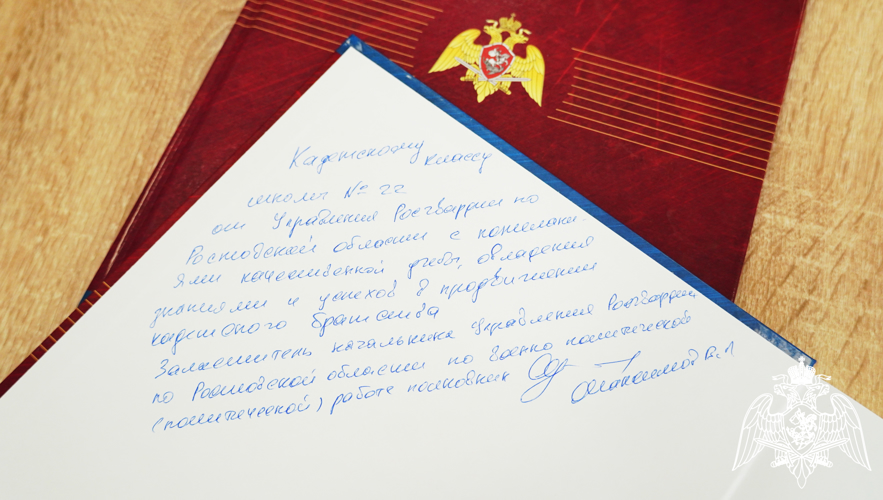 Кадетскому классу
школы № 22
от Управления Росгвардии по
Ростовской области с пожелани-
ями качественной учебы, овладения
знаниями и успехов в продвижении
кадетского братства
Заместитель начальника Управления Росгвардии
по Ростовской области по военно политической
(политической) работе полковник